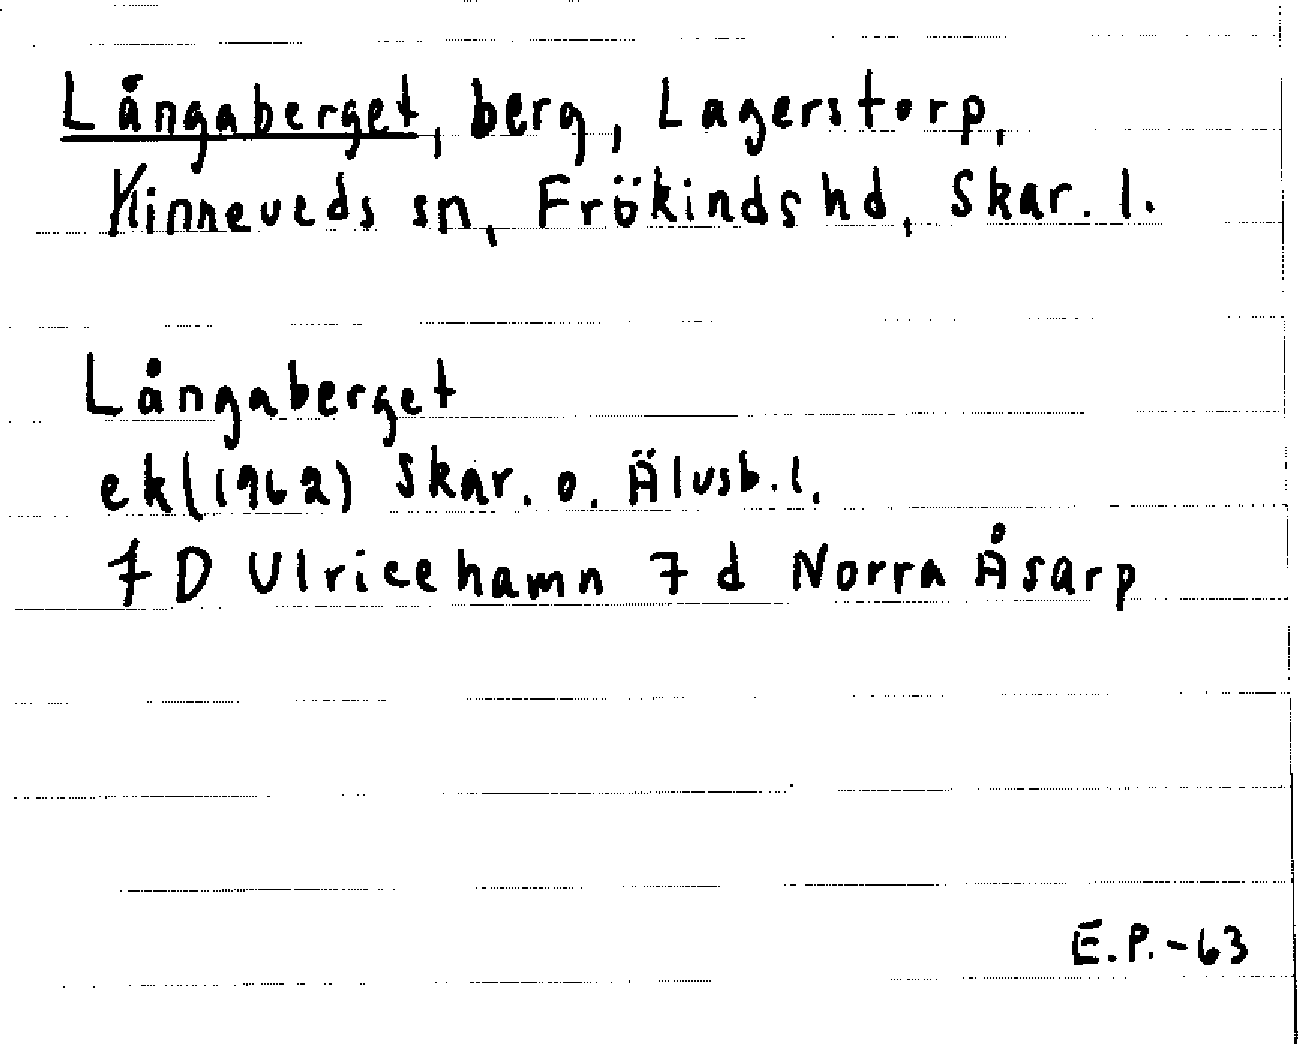 Långaberget, berg, Lagerstorp,
Kinneveds sn, Frökinds hd, Skar. l.
Långaberget
ekl(1962) Skar. o. Älvsb. l.
7 D Ulricehamn 7 d Norra Åsarp
E.P.-63